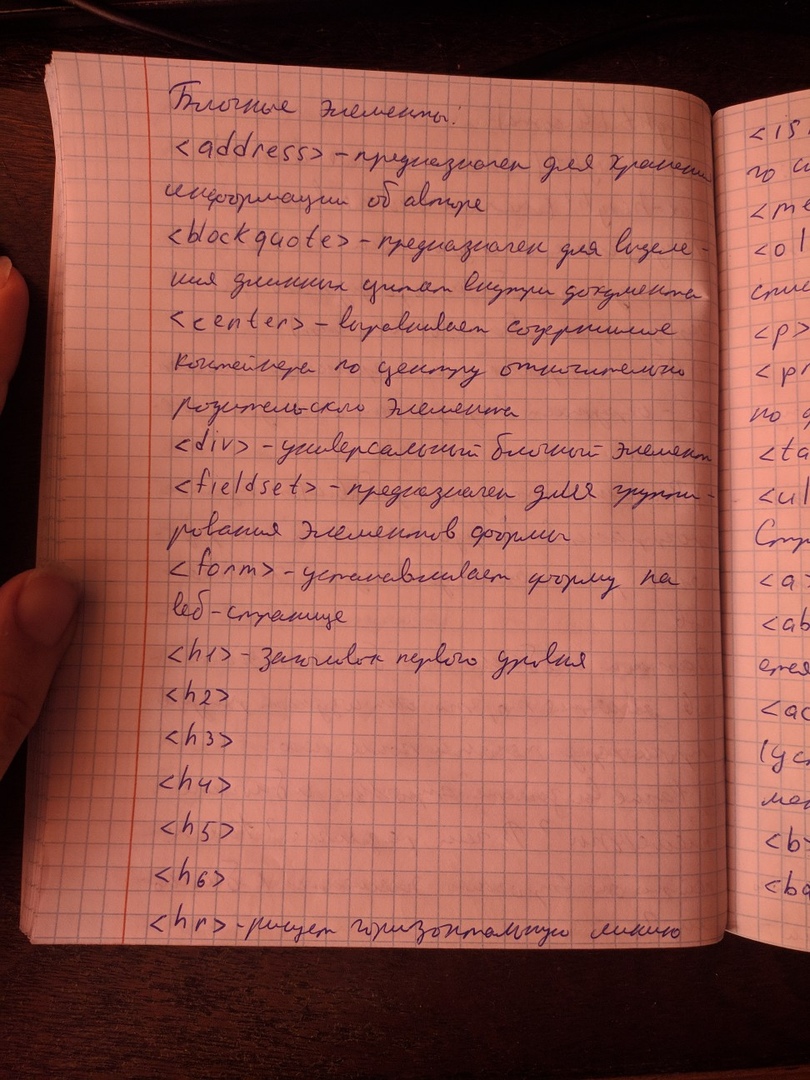 Блочные элементы:
<address> - предназначен для хранения
информации об авторе
<blockquote> - предназначен для выделе-
ния длинных цитат внутри документа
<center> - выравнивает содержимое
контейнера по центру относительно
родительского элемента
<div> - универсальный блочный элемент
<fieldset> - предназначен для группи-
рования элементов формы
<form> - устанавливает форму на
веб-странице
<h1> - заголовок первого уровня
<h2>
<h3>
<h4>
<h5>
<h6>
<hr> - рисует горизонтальную линию
го
<ol
<p>
по
<ul
<a>
<ab
<ac
<b>
<ba